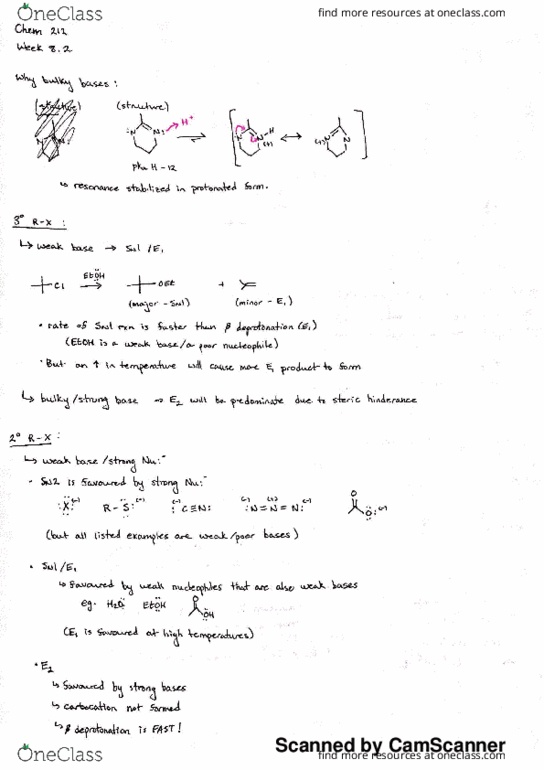 OneClass
find more resources at oneclass.com
Chem 212
Week 8.2
Why bulky bases:
(structure) (structure)
:N N: H+ N N-H (+) (+)N N
pka H-12
↳ resonance stabilized in protonated form.
3° R-X:
↳ weak base → SN1/E1
Cl EtÖH → OEt +
(major - SN1) (minor - E1)
• rate of SN1 rxn is faster than β deprotonation (E1)
(EtOH is a weak base/a poor nucleophile)
• But an ↑ in temperature will cause more E1 product to form
↳ bulky/strong base ⇒ E2 will be predominate due to steric hinderance
2° R-X:
↳ weak base/strong Nu:⁻
• SN2 is favoured by strong Nu:⁻
:X:(-) R-S:(-) (-):C≡N: (-):N=N=N:(-) (+) O O:(-)
(but all listed examples are weak/poor bases)
• SN1/E1
↳ favoured by weak nucleophiles that are also weak bases
eg. H2O EtOH O OH
(E1 is favoured at high temperatures)
• E2
↳ favoured by strong bases
↳ carbocation not formed
↳ β deprotonation is FAST!
Scanned by CamScanner
OneClass
find more resources at oneclass.com